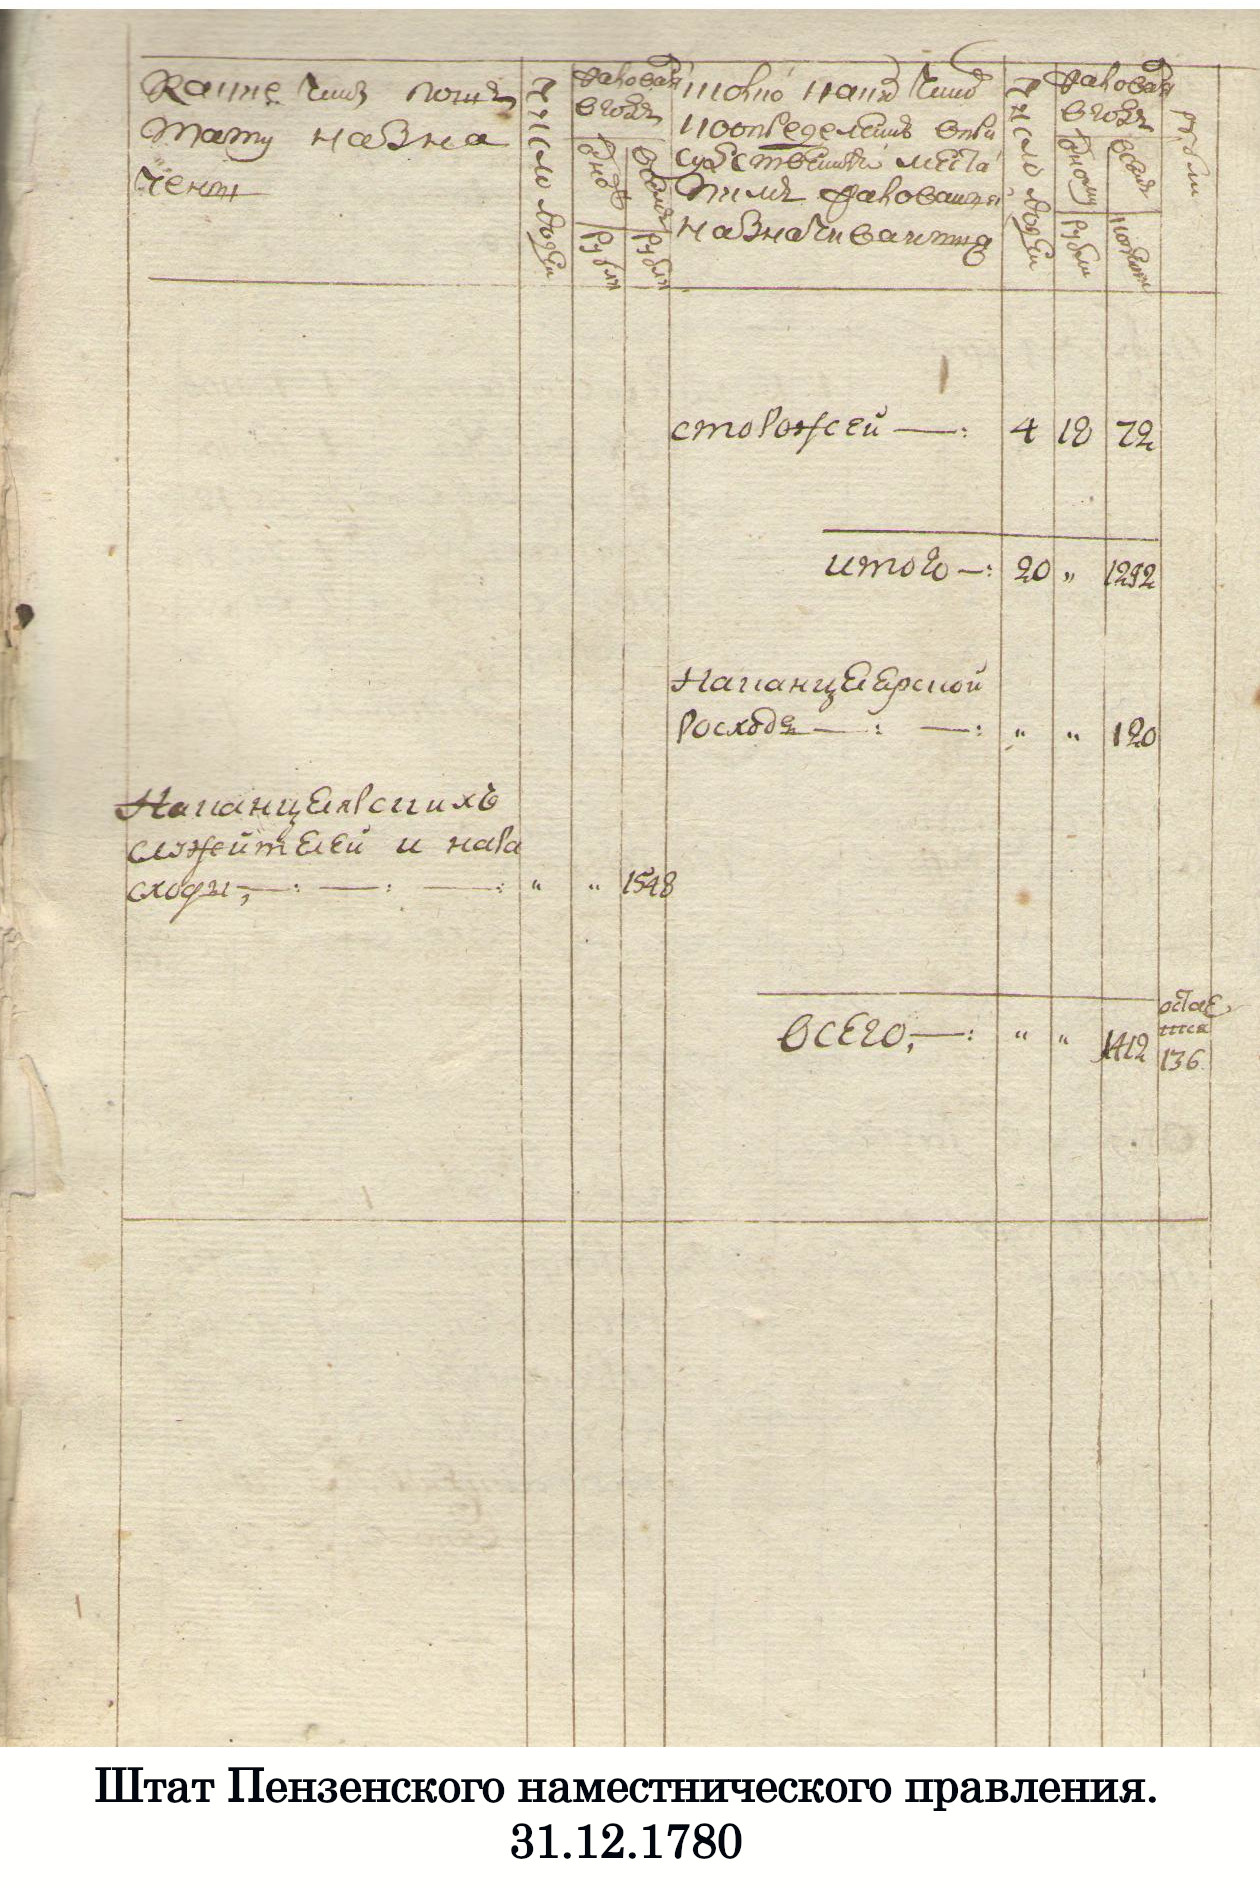 Какие чины поши
тату назна
чены
число людей
жалованя
в годъ
одному
всемъ
рубли
рубли
толко какие чины
поопределению
существенной места
жалованья
назначиваитца
число людей
жалованя
в годъ
одному
всемъ
рубли
рубли
сторожей —: 4 18 72
итого —: 20 „ 1292
На канцеLерской
росходъ — : — : „ „ 120
На канцелярскихъ
служителей и на ра
сходы, — : — : — : „ „ 1548
всего, — : „ „ 1412
остае
тся
136
Штат Пензенского наместнического правления.
31.12.1780